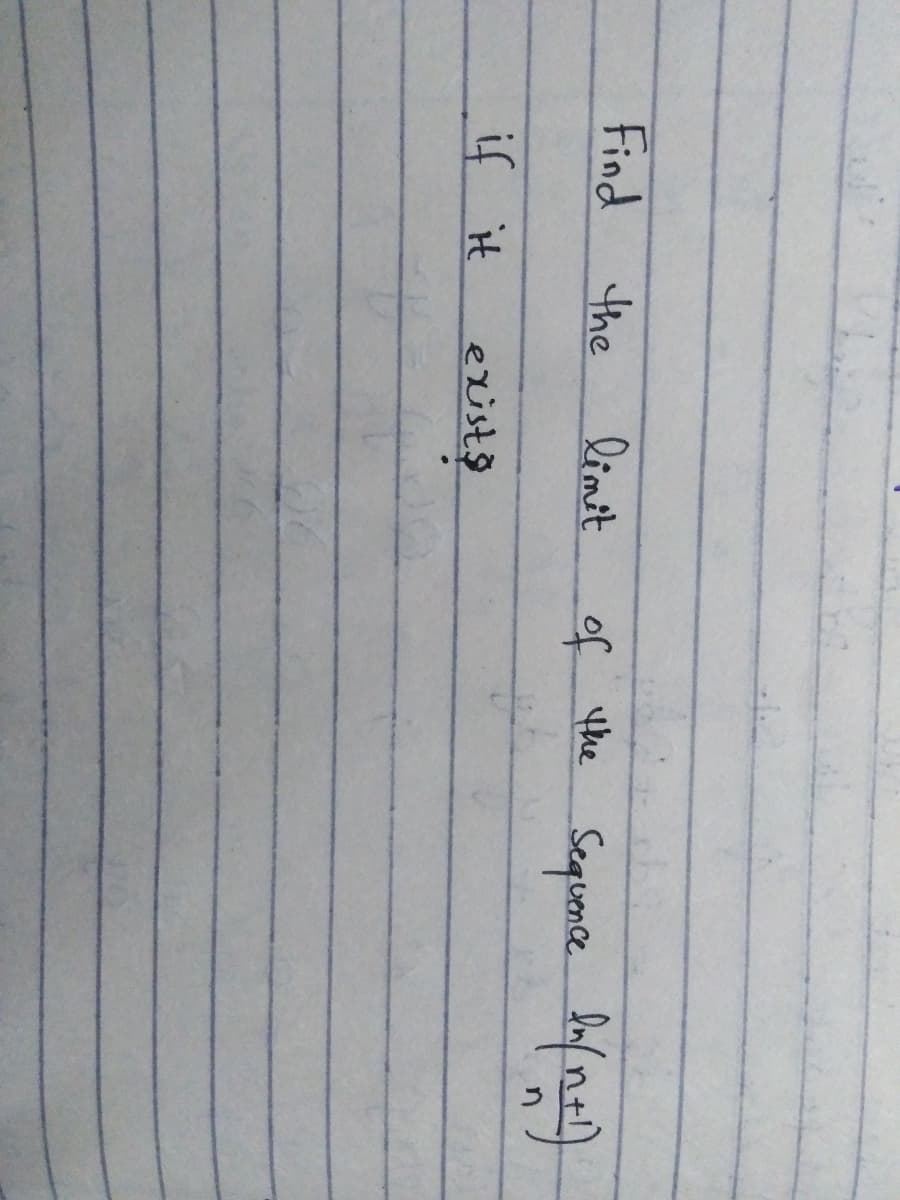 Find the limit of the Sequence ln(n+1/n)
if it exists.